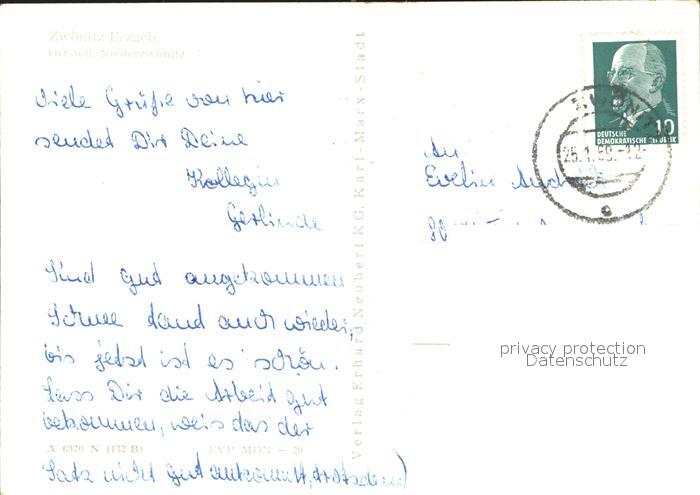 Zwönitz Erzgeb.
Ortsteil Niederzwönitz
Viele Grüße von hier
sendet Dir Deine
Kollegin
Gerlinde
Sind gut angekommen
Schnee fand auch wieder,
bis jetzt ist es schön.
Lass Dir die Arbeit gut
bekommen, weis das der
Satz nicht gut ankommt, trotzdem)
A 6920 N (132 B) EVP MDN —20
Verlag Erhard Neubert KG, Karl-Marx-Stadt
10
DEUTSCHE
DEMOKRATISCHE REPUBLIK
25.1.69.-12
An
Evelin
privacy protection
Datenschutz